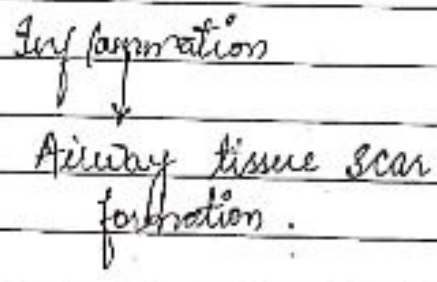 Inflammation
↓
Airway tissue scar
formation.